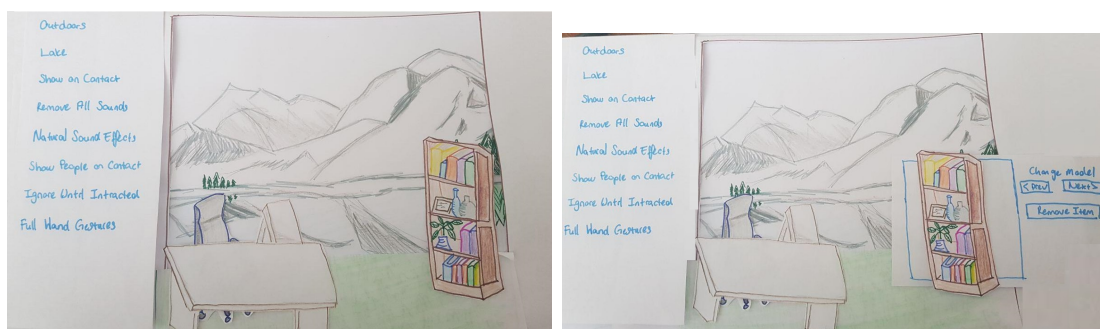 Outdoors
Lake
Show on Contact
Remove All Sounds
Natural Sound Effects
Show People on Contact
Ignore Until Intracted
Full Hand Gestures
Outdoors
Lake
Show on Contact
Remove All Sounds
Natural Sound Effects
Show People on Contact
Ignore Until Intracted
Full Hand Gestures
Change Model
<Prev Next>
Remove Item